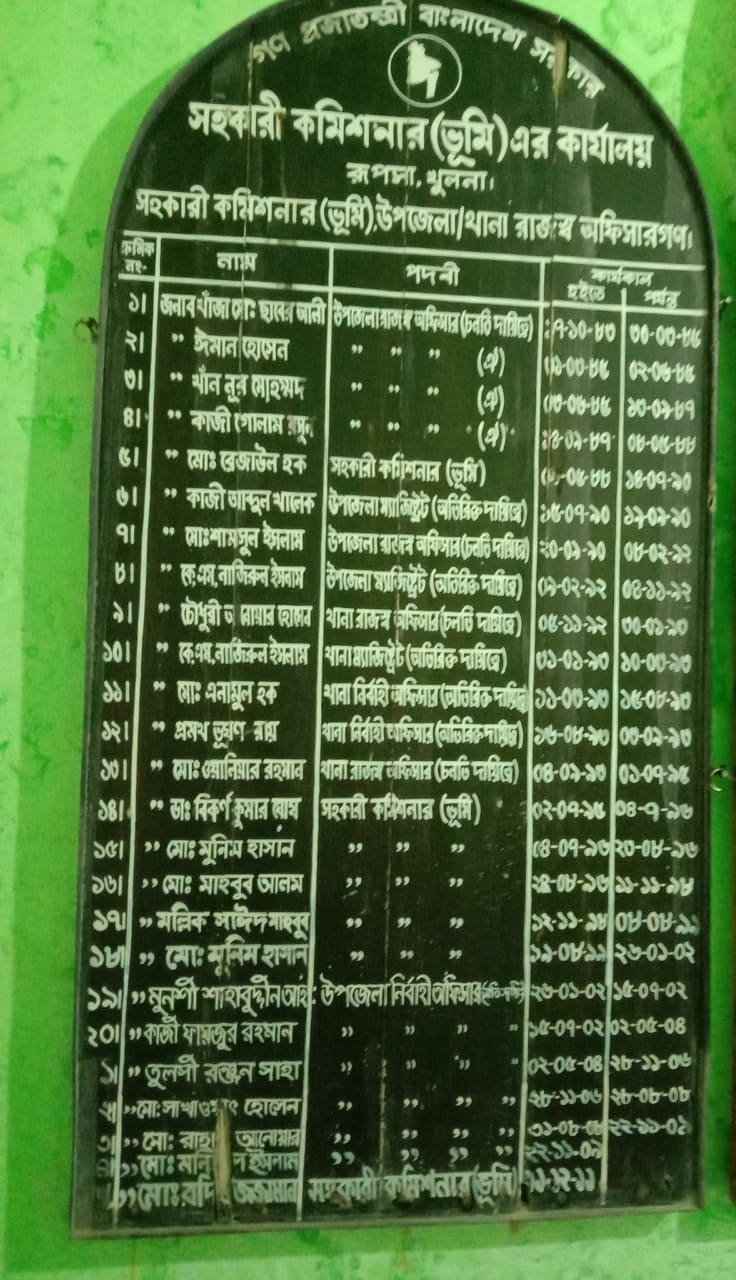 গণ প্রজাতন্ত্রী বাংলাদেশ সরকার
সহকারী কমিশনার (ভূমি) এর কার্যালয়
রূপসা, খুলনা।
সহকারী কমিশনার (ভূমি), উপজেলা/থানা রাজস্ব অফিসারগণ।
ক্রমিক নং- নাম পদবী কার্যকাল
হইতে পর্যন্ত
১। জনাব খাঁজা মো: ছাবের আলী উপজেলা রাজস্ব অফিসার (চলতি দায়িত্বে) ১৭-১০-৮৩ ৩০-০৩-৮৫
২। " ঈমান হোসেন " " " (ঐ) ৩১-০৩-৮৫ ০২-০৬-৮৫
৩। " খাঁন নূর মোহম্মদ " " " (ঐ) ০৩-০৬-৮৫ ১৩-০৯-৮৭
৪। " কাজী গোলাম রসুল " " " (ঐ) ১৪-০৯-৮৭ ০৮-০৫-৮৮
৫। " মো: রেজাউল হক সহকারী কমিশনার (ভূমি) ০৫-৮৮ ১৪-০৭-৯০
৬। " কাজী আব্দুল খালেক উপজেলা ম্যাজিষ্ট্রেট (অতিরিক্ত দায়িত্বে) ১৫-০৭-৯০ ১৯-০৯-৯০
৭। " মোঃ শামসুল ইসলাম উপজেলা রাজস্ব অফিসার (চলতি দায়িত্বে) ২০-০৯-৯০ ০৮-০২-৯২
৮। " কে,এম, নাজিরুল ইসলাম উপজেলা ম্যাজিষ্ট্রেট (অতিরিক্ত দায়িত্বে) ০৯-০২-৯২ ০৪-১১-৯২
৯। " চৌধুরী হোসেন থানা রাজস্ব অফিসার (চলতি দায়িত্বে) ০৫-১১-৯২ ৩০-০১-৯৩
১০। " কে,এম, নাজিরুল ইসলাম থানা ম্যাজিষ্ট্রেট (অতিরিক্ত দায়িত্বে) ৩১-০১-৯৩ ১০-০৩-৯৩
১১। " মোঃ এনামুল হক থানা নির্বাহী অফিসার (অতিরিক্ত দায়িত্বে) ১১-০৩-৯৩ ১৫-০৮-৯৩
১২। " প্রমথ ভূষণ রায় থানা নির্বাহী অফিসার (অতিরিক্ত দায়িত্বে) ১৬-০৮-৯৩ ০৩-০৯-৯৩
১৩। " মোঃ ওয়ালিয়ার রহমান থানা রাজস্ব অফিসার (চলতি দায়িত্বে) ০৪-০৯-৯৩ ০১-০৭-৯৫
১৪। " ডাঃ বিকর্ণ কুমার ঘোষ সহকারী কমিশনার (ভূমি) ০২-০৭-৯৫ ০৪-৭-৯৬
১৫। " মোঃ মুনিম হাসান " " " ০৪-০৭-৯৬ ২৩-০৮-৯৬
১৬। " মোঃ মাহবুব আলম " " " ২৪-০৮-৯৬ ১১-১১-৯৮
১৭। " মল্লিক সাঈদ মাহবুব " " " ১২-১১-৯৮ ০৮-০৮-৯৯
১৮। " মো: মুনিম হাসান " " " ১৯-০৮-৯৯ ২৬-০১-০২
১৯। " মুনর্শী শাহাবুদ্দীন আহ: উপজেলা নির্বাহী অফিসার ২৬-০১-০২ ১৫-০৭-০২
২০। " কাজী ফায়জুর রহমান " " " " ১৫-০৭-০২ ০২-০৫-০৪
১। " তুলসী রঞ্জন সাহা " " " " ০২-০৫-০৪ ২৮-১১-০৬
" মো: হোসেন " " " " ২৮-১১-০৬ ২৮-০৮-০৮
" মো: আনোয়ার " " " " ৩১-০৮-০৮
" মোঃ ইসলাম " " " " ২২-১১-০৯
" মোঃ সহকারী কমিশনার (ভূমি)